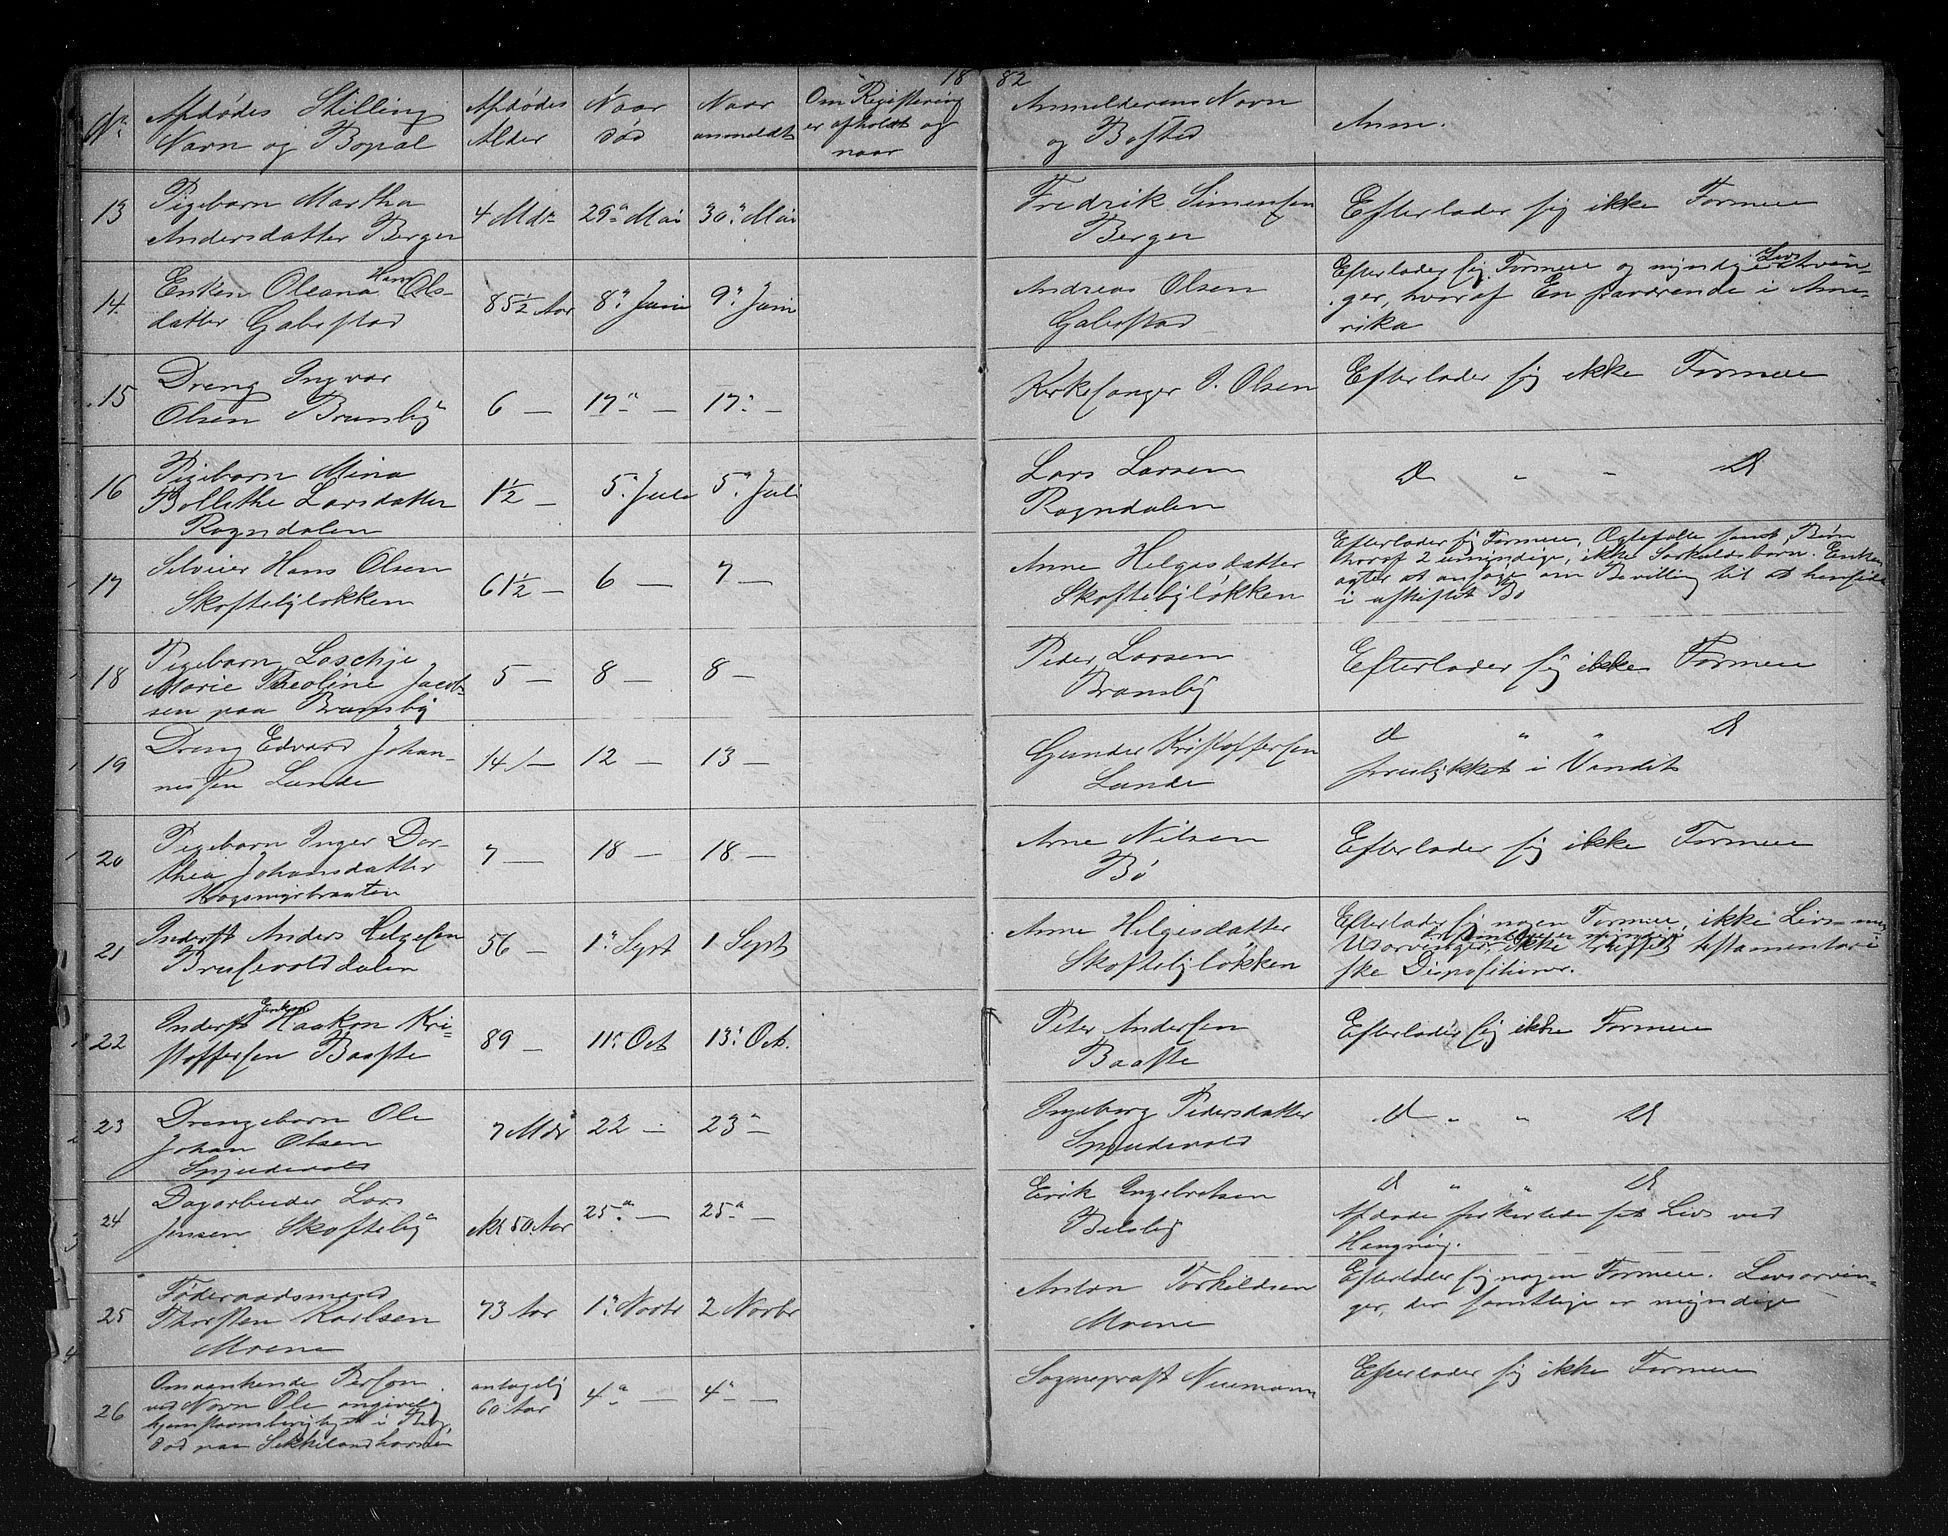 1882
No Afdødes Stilling Navn og Bopæl | Afdødes Alder | Naar død | Naar anmeldt | Om Registrering er afholdt og naar | Anmelderens Navn og Bosted | Anm.
13 Pigebarn Martha
Andersdatter Berger
4 Mdr 29de Mai 30te Mai
Fredrik Simensen
Berger
Efterlader sig ikke Formue
14 Enken Oleana Hans Ols-
datter Gaberstad
85½ Aar 8de Juni 9de Juni
Andreas Olsen
Gaberstad
Efterlader sig Formue og myndige Livs Arvin-
ger, hvoraf En fraværende i Ame-
rika
15 Dreng Ingvar
Olsen Brunsby
6 — 17de — 17de —
Kirkesanger J. Olsen
Efterlader sig ikke Formue
16 Pigebarn Mina
Bollethe Larsdatter
Rogndalen
1½ — 5te Juli 5te Juli
Lars Larsen
Rogndalen
do " " do
17 Selveier Hans Olsen
Skoftebyløkken
61½ — 6 — 7 —
Anne Helgesdatter
Skoftebyløkken
Efterlader sig Formue, Ægtefælle samt Børn
hvoraf 2 umyndige, ikke Særkuldsbarn. Enken
agter at ansøge om Bevilling til at hensidde
i uskiftet Bo
18 Pigebarn
Marie Theoline Jacob-
sen paa Brunsby
5 — 8 — 8 —
Peder Larsen
Bransby
Efterlader sig ikke Formue
19 Dreng Edvard Johan-
nessen Lunde
14 — 12 — 13 —
Gunder Kristoffersen
Lunde
do " " do
forulykket i Vandet
20 Pigebarn Inger Dor-
thea Johansdatter
7 — 18 — 18 —
Arne Nilsen
Bø
Efterlader sig ikke Formue
21 Inderst Anders Helgesen
Brusevolddalen
56 — 1ste Sept 1 Sept
Anne Helgesdatter
Skoftebyløkken
Efterlader sig nogen Formue, ikke Livs- men
Udarvinger, ikke truffet testamentari-
ske Dispositioner.
22 Inderst Enkem Haakon Kri-
stoffersen Baaste
89 — 11te Oct 13de Oct.
Peter Andersen
Baaste
Efterlader sig ikke Formue
23 Drengebarn Ole
Johan Olsen
7 Mdr 22 — 23de —
Ingeborg Pedersdatter
do " " do
24 Dagarbeider Lars
Jensen Skofteby
50 Aar 25de — 25de —
Erik Ingebretsen
Belsby
do " " do
Afdøde forkortede sit Liv ved
Hængning.
25 Føderaadsmand
Thorsten Karlsen
Moene
73 Aar 1ste Novbr 2 Novbr
Anton Torkeldsen
Moene
Efterlader sig nogen Formue. Livsarvin-
ger, der samtlige er myndige
26 Omvankende Person
ved Navn Ole angivelig
hjemstavnsberettiget i
død paa
antagelig
60 Aar 4de — 4de —
Sogneprest Neumann
Efterlader sig ikke Formue